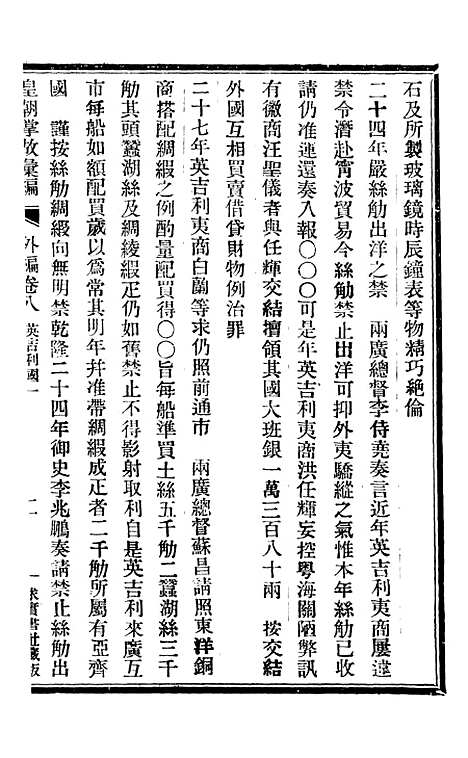 石及所製玻璃鏡時辰鐘表等物精巧絶倫
二十四年嚴絲觔出洋之禁　兩廣總督李侍堯奏言近年英吉利夷商屢違
禁令潛赴甯波貿易今絲觔禁止出洋可抑外夷驕縱之氣惟本年絲觔已收
請仍准運還奏入報〇〇〇可是年英吉利夷商洪任輝妄控粤海關陋弊訊
有徽商汪聖儀者與任輝交結擅領其國大班銀一萬三百八十兩　按交結
外國互相買賣借貸財物例治罪
二十七年英吉利夷商白蘭等求仍照前通市　兩廣總督蘇昌請照東洋銅
商搭配綢緞之例酌量配買得〇〇旨每船準買土絲五千觔二蠶湖絲三千
觔其頭蠶湖絲及綢綾緞疋仍如舊禁止不得影射取利自是英吉利來廣互
市每船如額配買歲以爲常其明年并准帶綢緞成疋者二千觔所屬有亞齊
國　謹按絲觔綢緞向無明禁乾隆二十四年御史李兆鵬奏請禁止絲觔出
皇朝掌故彙編　外編卷八　英吉利國一　二一　求實書社藏版